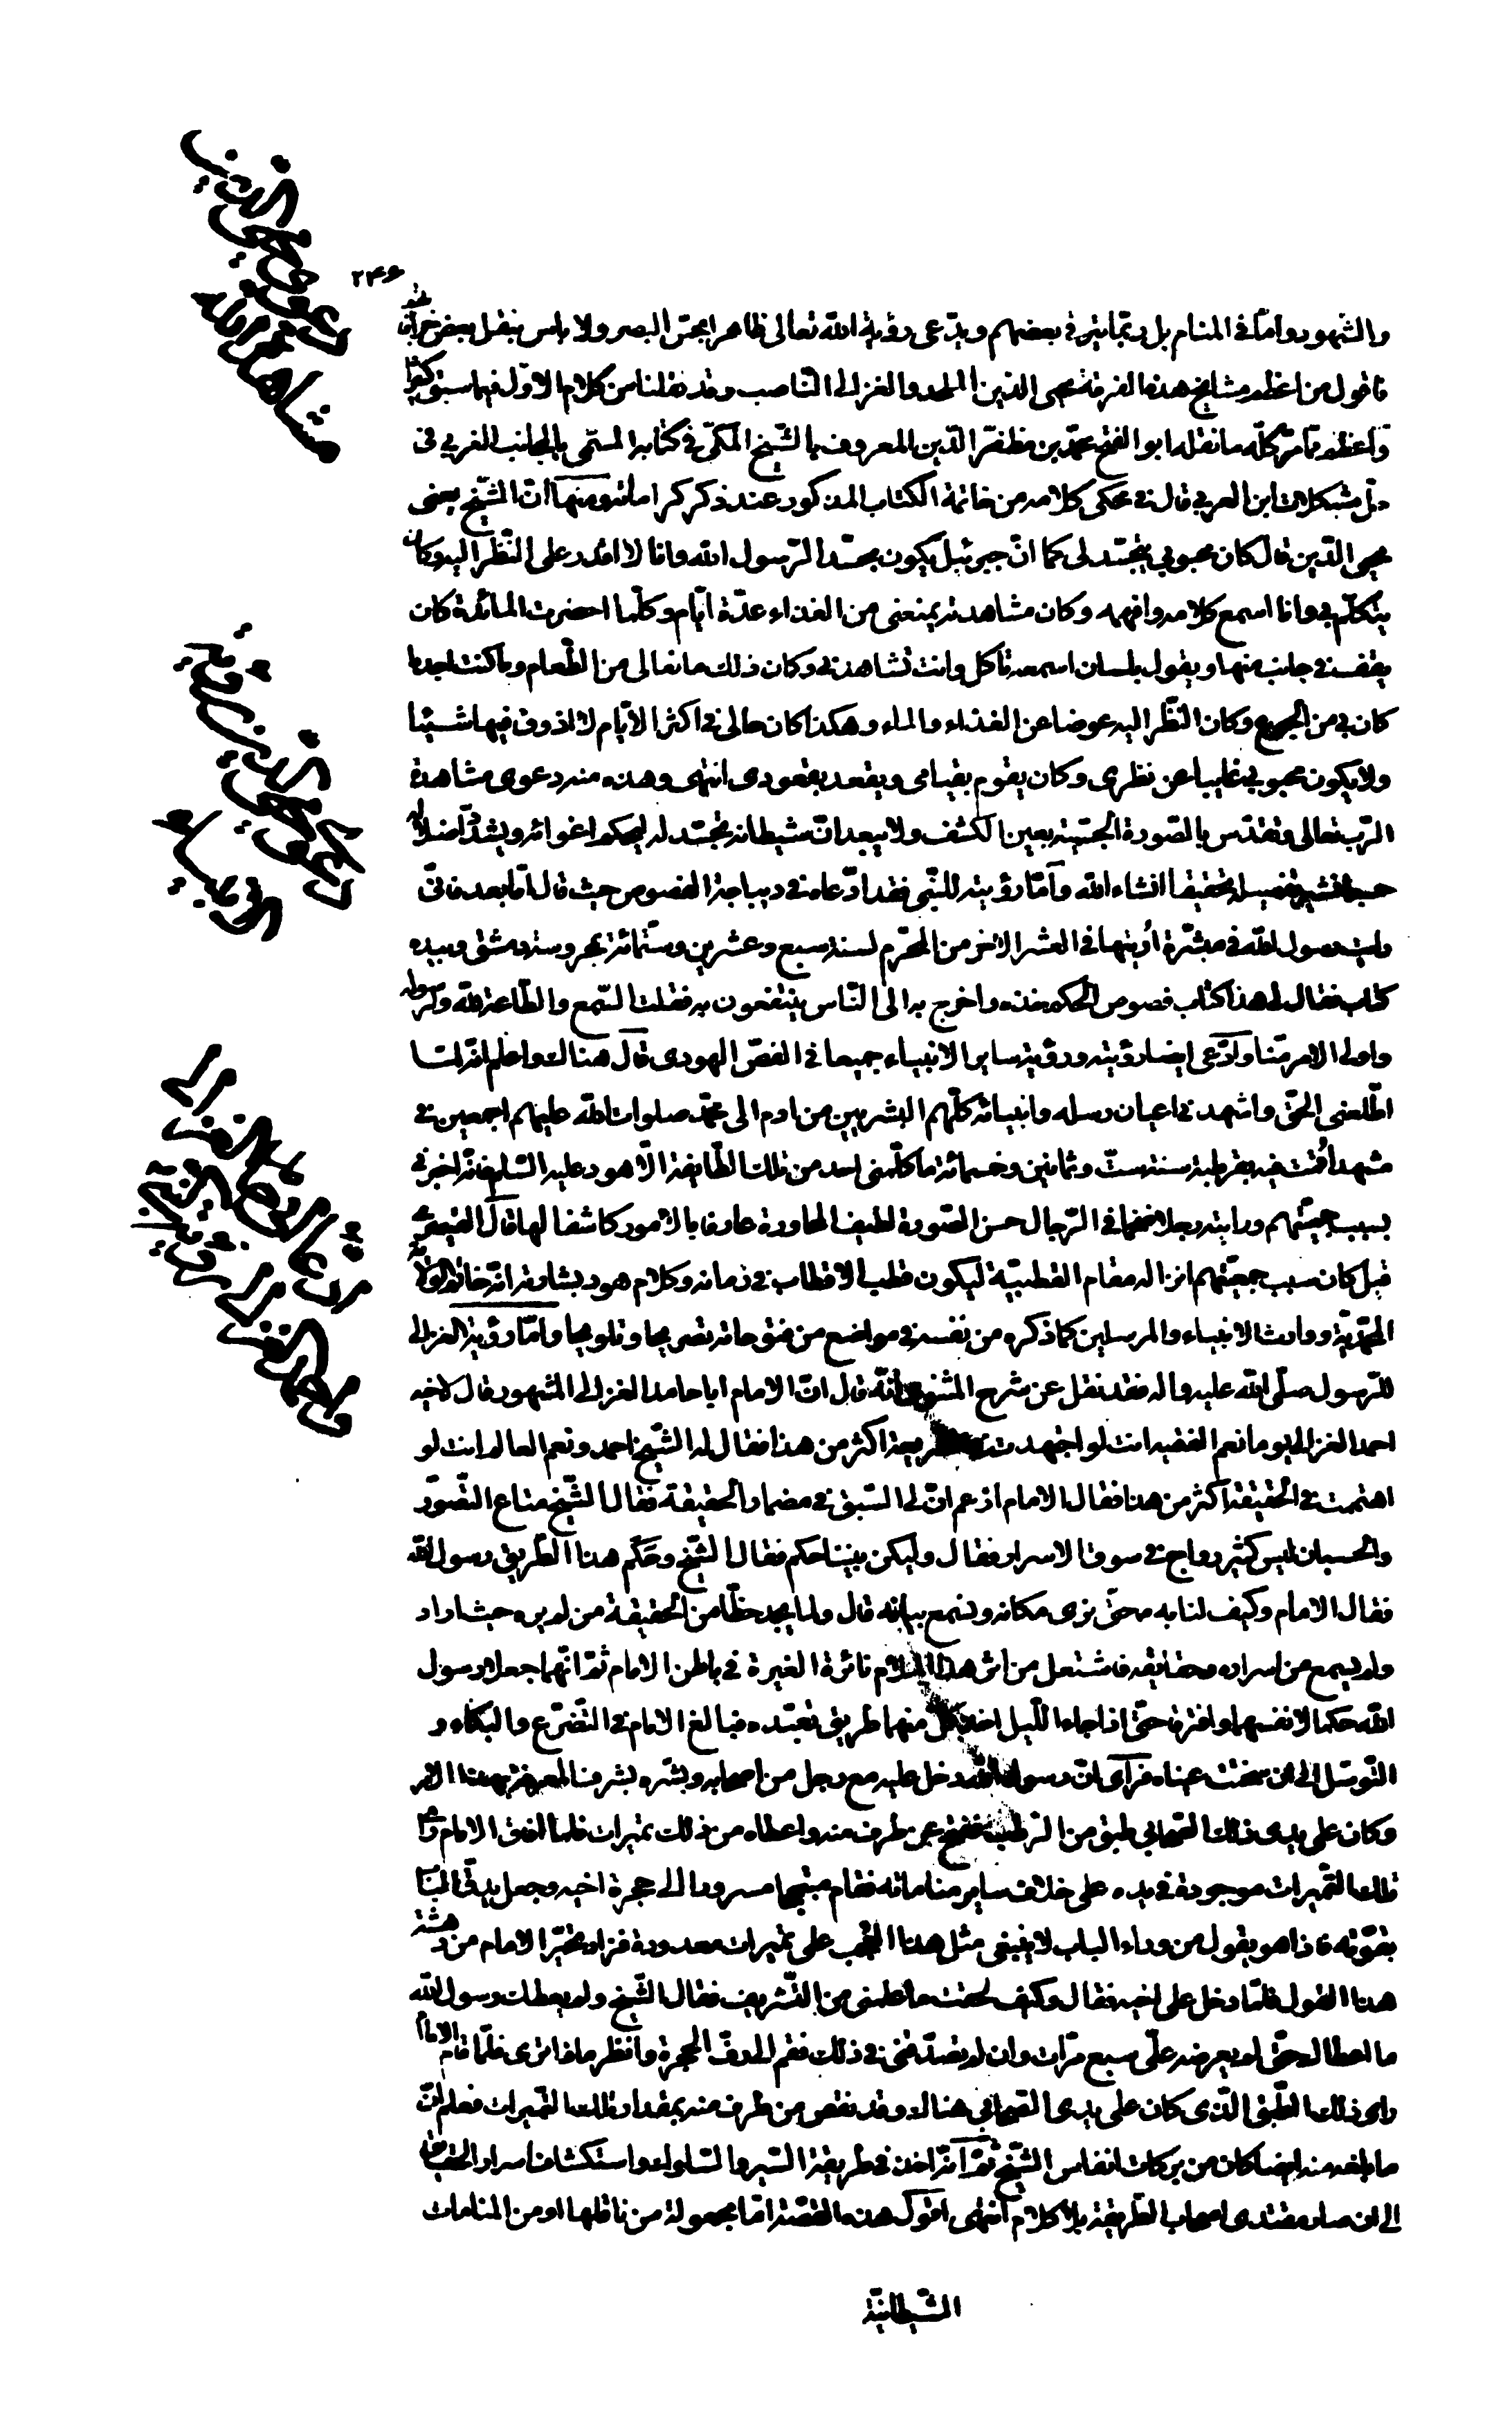 ۲۴۶
والشهود واما في المنام بل ربما يترقى بعضهم ويدعى رؤية الله تعالى ظاهرا بحس البصر ولا باس بنقل بعض خرافاتهم
فاقول من اعظم مشايخ هذه الفرقة محيى الدين الملحد والغزالى الناصب وقد نقلنا من كلام الاول فيما سبق
واعظم مما مر كله ما نقله ابو الفتح محمد بن مظفر الدين المعروف بالشيخ المكى في كتابه المسمى بالجانب الغربي في
حل مشكلات ابن العربي قال في محكى كلامه من خاتمة الكتاب المذكور عند ذكر كراماته ومنها ان الشيخ يعنى
محيى الدين قال كان محبوبي يتجسد لى كما ان جبرئيل يكون مجسدا لرسول الله وانا لا اقدر على النظر اليه وكان
يتكلم بي وانا اسمع كلامه وافهمه وكان مشاهدته يمنعنى من الغذاء عدة ايام وكلما احضرت المائدة كان
يقف في جانب منها ويقول بلسان اسمعه تاكل وانت تشاهدنى وكان ذلك مانعا لى من الطعام وما كنت اجد ما
كان بي من الجوع وكان النظر اليه عوضا عن الغذاء والماء وهكذا كان حالى في اكثر الايام لا اذوق فيها شيئا
ولا يكون محبوبي غايبا عن نظرى وكان يقوم بقيامى ويقعد بقعودى انتهى وهذه منه دعوى مشاهدة
الرب تعالى وتقدس بالصورة الجسمية بعين الكشف ولا يبعد ان شيطانه تجسد له ليحكم اغوائه ويشد اضلاله
تحقيقا انشاء الله واما رؤيته للنبي فقد ادعاه في ديباجة الفصوص حيث قال اما بعد فانى
رايت رسول الله في مبشرة أريتها في العشر الاخر من المحرم لسنة سبع وعشرين وستمائة بمحروسة دمشق وبيده
كتاب فقال لى هذا كتاب فصوص الحكم خذه واخرج به الى الناس ينتفعون به فقلت السمع والطاعة لله ولرسوله
واولى الامر منا وادعى ايضا رؤيته ورؤية ساير الانبياء جميعا في الفص الهودى قال هناك واعلم انه لما
اطلعنى الحق واشهد في اعيان رسله وانبيائه كلهم البشريين من ادم الى محمد صلوات الله عليهم اجمعين في
مشهد أقمت فيه بقرطبة سنة ست وثمانين وخمسمائة ما كلمنى احد من تلك الطايفة الا هود عليه السلام فانه اخبرنى
بسبب جمعيتهم ورايته رجلا ضخما في الرجال حسن الصورة لطيف المحاورة عارفا بالامور كاشفا لها قال القيصرى
قيل كان سبب جمعيتهم انزاله مقام القطبية ليكون قطب الاقطاب في زمانه وكلام هود بشارته انه خاتم الولاية
المحمدية ووارث الانبياء والمرسلين كما ذكره من نفسه في مواضع من فتوحاته تصريحا وتلويحا واما رؤية الغزالى
للرسول صلى الله عليه واله فقد نقل عن شرح المثنوى أنه قال ان الامام ابا حامد الغزالى المشهور قال لاخيه
احمد الغزالى يوما نعم الفقيه انت لو اجتهدت في الشريعة اكثر من هذا فقال له الشيخ احمد ونعم العالم انت لو
اهتممت في الحقيقة اكثر من هذا فقال الامام ازعم ان لى السبق في مضمار الحقيقة فقال الشيخ متاع التصور
والحسبان ليس كثير رواج في سوق الاسرار فقال وليكن بيننا حكم فقال الشيخ وحَكَم هذا الطريق رسول الله
فقال الامام وكيف لنا به حتى نرى مكانه ونسمع بيانه قال ولما يجد حظا من الحقيقة من لم يره حيث اراد
ولم يسمع من اسراره وحقايقه فاشتعل من اثر هذا الكلام نائرة الغيرة في باطن الامام ثم انهما جعلا رسول
الله حكما لانفسهما وافترقا حتى اذا جاء الليل اخذ كل منهما طريق تعبده فبالغ الامام في التضرع والبكاء و
التوسل الى ان سخنت عيناه فرآى ان رسول الله دخل عليه مع رجل من اصحابه وبشره بشرف المعرفة بهذا الامر
وكان على يدى ذلك الصحابي طبق من الرطب ففتح عن طرف منه واعطاه من ذلك تميرات فلما افاق الامام راى
تلك التميرات موجودة في يده على خلاف ساير مناماته فقام مبتهجا مسرورا الى حجرة اخيه وجعل يدق الباب
بقوته فاذا هو يقول من وراء الباب لا ينبغى مثل هذا العجب على تميرات معدودة فزاد تحير الامام من دهشة
هذا القول فلما دخل على اخيه فقال وكيف لحقت ما لحقنى من التشريف فقال الشيخ ولم يعطك رسول الله
ما اعطاك حتى لم يعرضه علىّ سبع مرات وان لم تصدقنى في ذلك فقم الى رف الحجرة وانظر ماذا ترى فلما قام الامام
راى ذلك الطبق الذى كان على يدى الصحابي هناك وقد نقص من طرف منه بمقدار تلك التميرات فعلم ان
ما بلغه منه ايضا كان من بركات انفاس الشيخ ثم انه اخذ في طريقة السير والسلوك واستكشاف اسرار الحقايق
الى ان صار مقتدى اصحاب الطريقة بلا كلام انتهى اقول هذه القصة اما مجعولة من ناقلها او من المنامات
الشيطانية